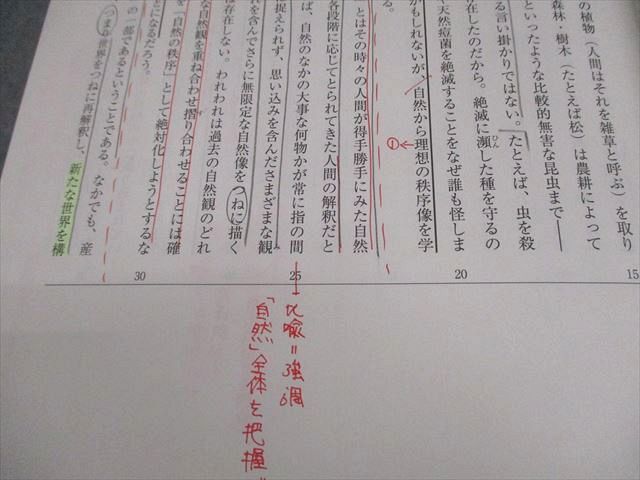 の植物（人間はそれを雑草と呼ぶ）を取り
森林・樹木（たとえば松）は農耕によって
といったような比較的無害な昆虫まで――
る言い掛かりではない。たとえば、虫を殺
存在したのだから。絶滅に瀕した種を守るの
ひん
天然痘菌を絶滅することをなぜ誰も怪しま
かもしれないが、自然から理想の秩序像を学
①
る。
とはその時々の人間が得手勝手にみた自然
各段階に応じてとられてきた人間の解釈だと
ば、自然のなかの大事な何物かが常に指の間
捉えられず、思い込みを含んださまざまな観
を含んでさらに無限定な自然像をつねに描く
は存在しない。われわれは過去の自然観のどれ
な自然観を重ね合わせ摺り合わせることには確
す
を「自然の秩序」として絶対化しようとするな
とになるだろう。
の一部であるということである。なかでも、産
つまり世界をつねに再解釈し、新たな世界を構
15
20
25
30
比喩＝強調
「自然」全体を把握